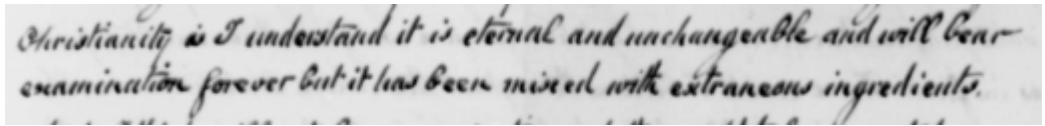 Christianity as I understand it is eternal and unchangeable and will bear
examination forever but it has been mixed with extraneous ingredients.